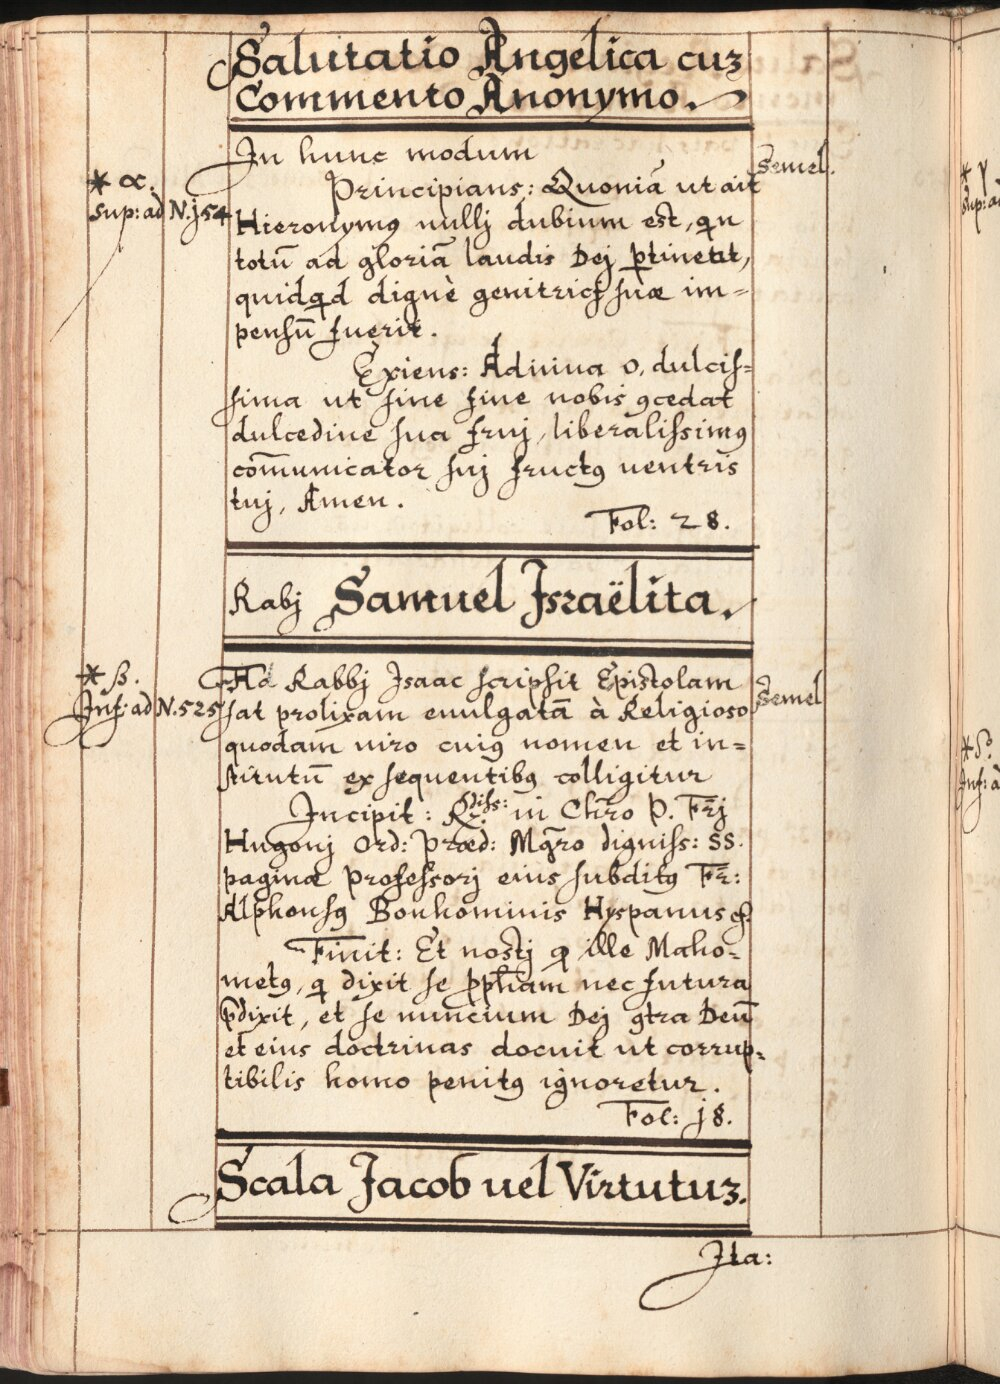 Salutatio Angelica cuʒ
Commento Anonymo.
In hunc modum
Semel.
* α.
Principians: Quoniā ut ait
Sup: ad N. j54
Hieronymꝰ nullj dubium est, qīn
totū ad gloriā laudis Dej ꝑtineat,
quidqd dignè genitricj suæ im=
pensū fuerit.
Exiens: Adiuua o, dulcis=
sima ut sine fine nobis ꝯcedat
dulcedine sua fruj, liberalissimꝰ
com̄unicator suj fructꝰ uentris
tuj, Amen.
Fol: 28.
Rabj Samuel Israëlita.
* β.
Ad Rabbj Isaac scripsit Epistolam
Semel
Inf: ad N. 525
sat prolixam euulgatā à Religioso
quodam uiro cuiꝰ nomen et in=
stitutū ex sequentibꝰ colligitur
Incipit: Rdiss: in Chr̄o P. Fr̄j
Hugonj Ord: Præd: Mgr̄o digniss: SS.
paginæ Professorj eius subditꝰ Fr̄:
Alphonsꝰ Bonhominis Hyspanus
Finit: Et nostj ꝙ ille Maho-
metꝰ, ꝗ dixit se ꝓph̄am nec futura
p̄dixit, et se nuncium Dej ꝯtra Deū
et eius doctrinas docuit ut corrup=
tibilis homo penitꝰ ignoretur.
Fol: j8.
Scala Jacob uel Virtutuʒ.
Ita: